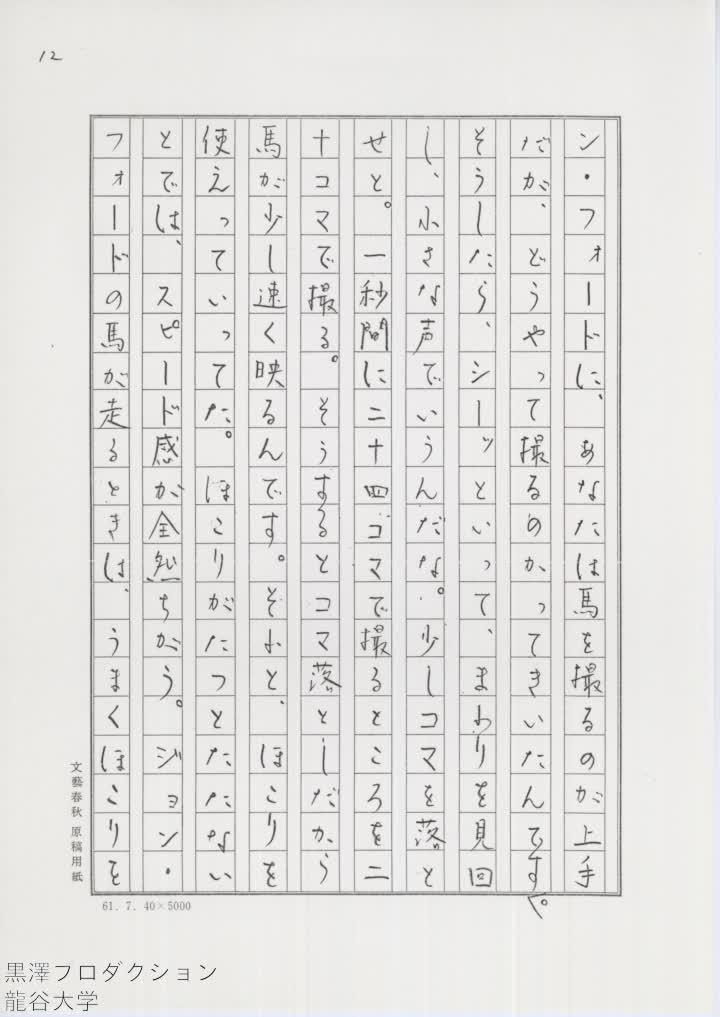 12
ン・フォードに、あなたは馬を撮るのが上手
だが、どうやって撮るのかってきいたんです。
そうしたら、シーッといって、まわりを見回
し、小さな声でいうんだな。少しコマを落と
せと。一秒間に二十四コマで撮るところを二
十コマで撮る。そうするとコマ落としだから
馬が少し速く映るんです。それと、ほこりを
使えっていってた。ほこりがたつとたたない
とでは、スピード感が全然ちがう。ジョン・
フォードの馬が走るときは、うまくほこりを
文藝春秋 原稿用紙
61. 7. 40×5000
黒澤プロダクション
龍谷大学